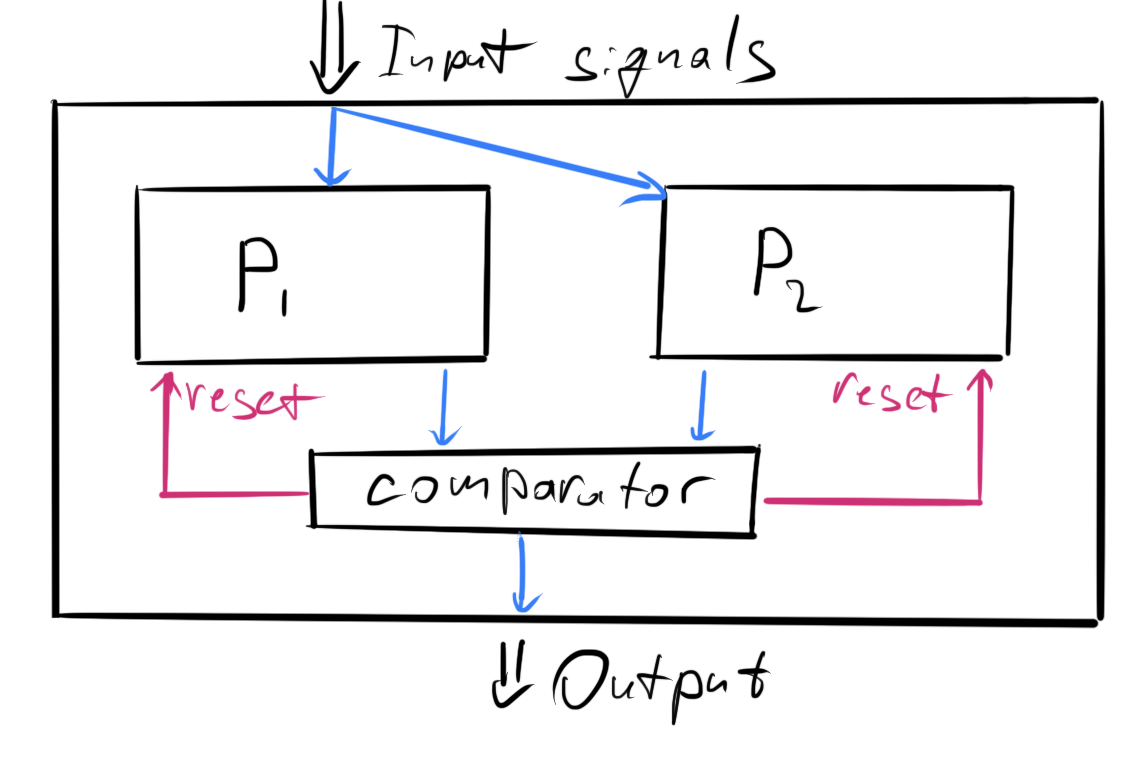 Input signals
P₁
P₂
reset
reset
comparator
Output